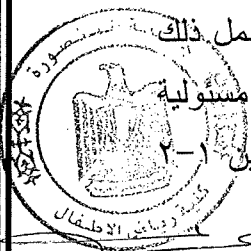 مل ذلك
مسئولية
١-٢
المنصورة
كلية رياض الاطفال